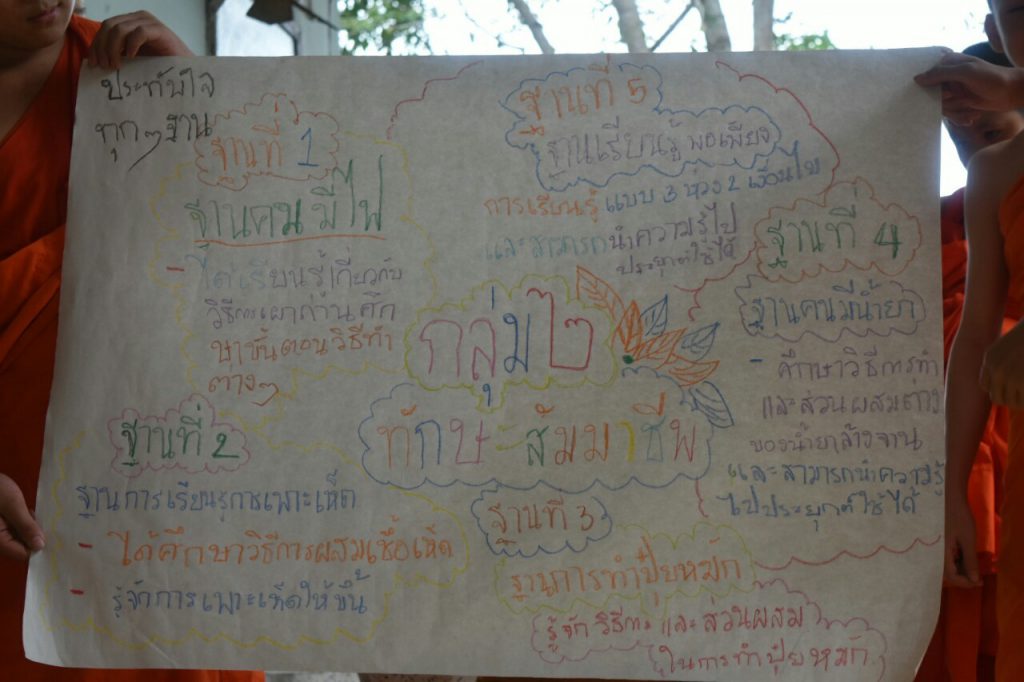 ประทับใจ
ทุกๆฐาน
ฐานที่ 1
ฐานคนมีไฟ
- ได้เรียนรู้เกี่ยวกับ
วิธีการเผาถ่านศึก
ษาขั้นตอนวิธีทำ
ต่างๆ
ฐานที่ 5
ฐานเรียนรู้ พอเพียง
การเรียนรู้ แบบ 3 ห่วง 2 เงื่อนไข
และสามารถนำความรู้ไป
ประยุกต์ใช้ได้
ฐานที่ 4
ฐานคนมีน้ำยา
- ศึกษาวิธีการทำ
และส่วนผสมต่าง
ของน้ำยาล้างจาน
และสามารถนำความรู้
ไปประยุกต์ใช้ได้
กลุ่ม ๒
ทักษะสัมมาชีพ
ฐานที่ 2
ฐานการเรียนรู้การเพาะเห็ด
- ได้ศึกษาวิธีการผสมเชื้อเห็ด
- รู้จักการเพาะเห็ดให้ขึ้น
ฐานที่ 3
ฐานการทำปุ๋ยหมัก
รู้จักวิธีการ และส่วนผสม
ในการทำปุ๋ยหมัก